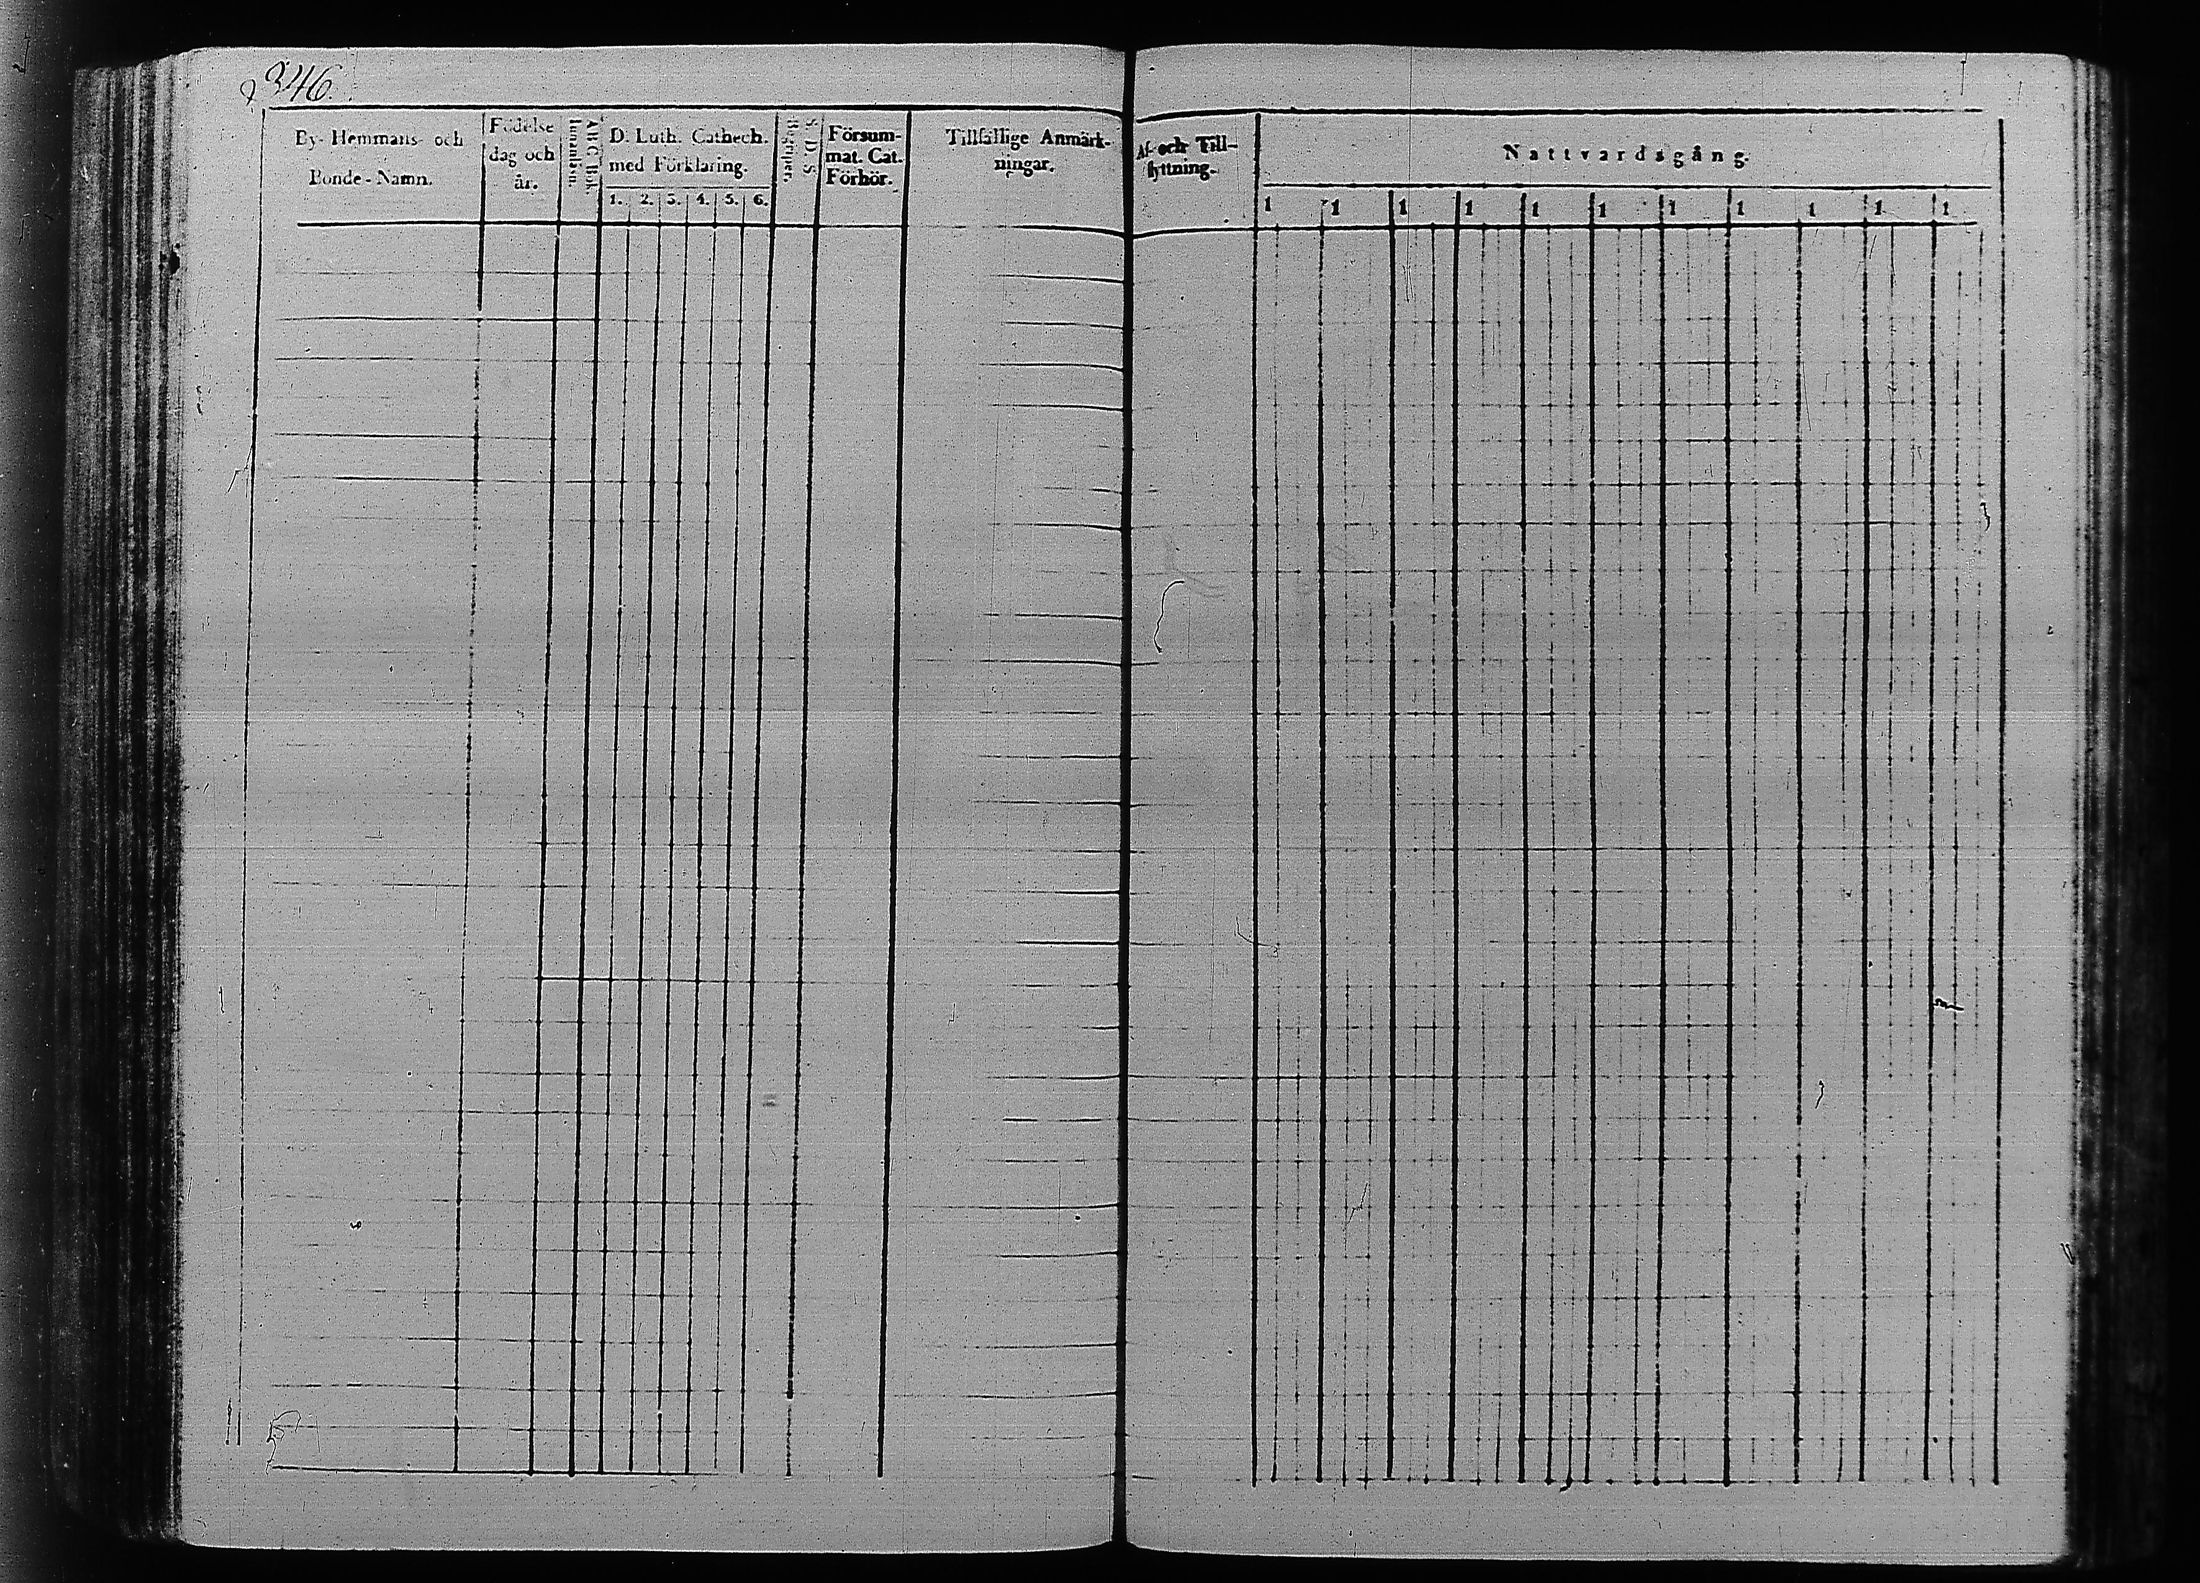 346.
By- Hemmans- och
Bonde-Namn.
Födelse
dag och
år.
A B C Bok.
Innanläsn.
D. Luth. Cathech.
med Förklaring.
1. 2. 3. 4. 5. 6.
S. D. S.
Begreper.
Försum-
mat. Cat.
Förhör.
Tillfällige Anmärk-
ningar.
Af- och Till-
flyttning.
Nattvardsgång.
1 1 1 1 1 1 1 1 1 1 1